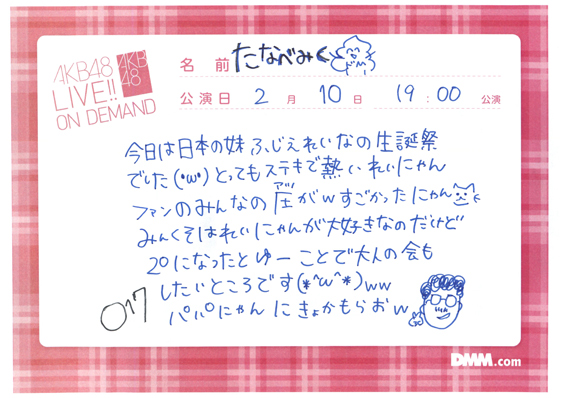 AKB48
LIVE!!
ON DEMAND
AKB
48
名 前 たなべみく
公演日 2 月 10 日 19:00 公演
今日は日本の妹 ふじえれいなの生誕祭
でした(・ω・)とってもステキで熱いれいにゃん
ファンのみんなの圧がwすごかったにゃん
アツ
みんくそはれいにゃんが大好きなのだけど
20になったとゆーことで大人の会も
したいところです(*^ω^*)ww
パパにゃんにきょかもらおw
017
DMM.com